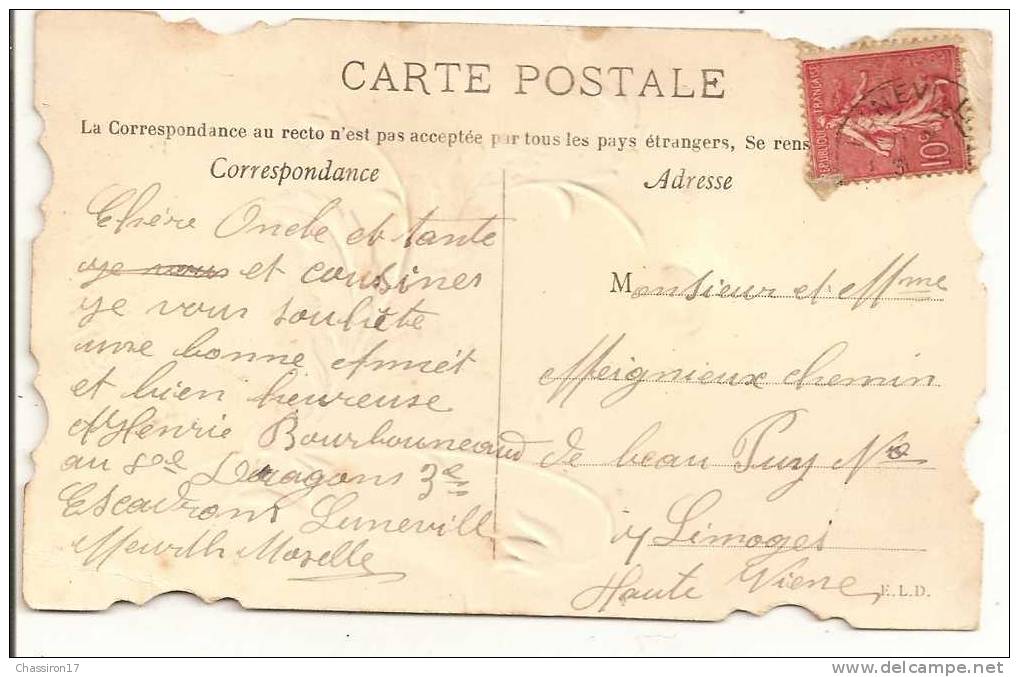 CARTE POSTALE
La Correspondance au recto n'est pas acceptée par tous les pays étrangers, Se rens
Correspondance
Chère Oncle et tante
je vous et cousines
je vous souhète
une bonne Annét
et bien heureuse
Henrie Bourbouneaud
au 8ol Dragons 3e
Escadrons Lunevill
Meurth Moselle
Adresse
Monsieur et Mme
Meignieux chemin
de beau Puy No
y Limoges
Haute Viene
E.L.D.
RÉPUBLIQUE FRANÇAISE
10c
NEVI
Chassiron17
delcampe.net